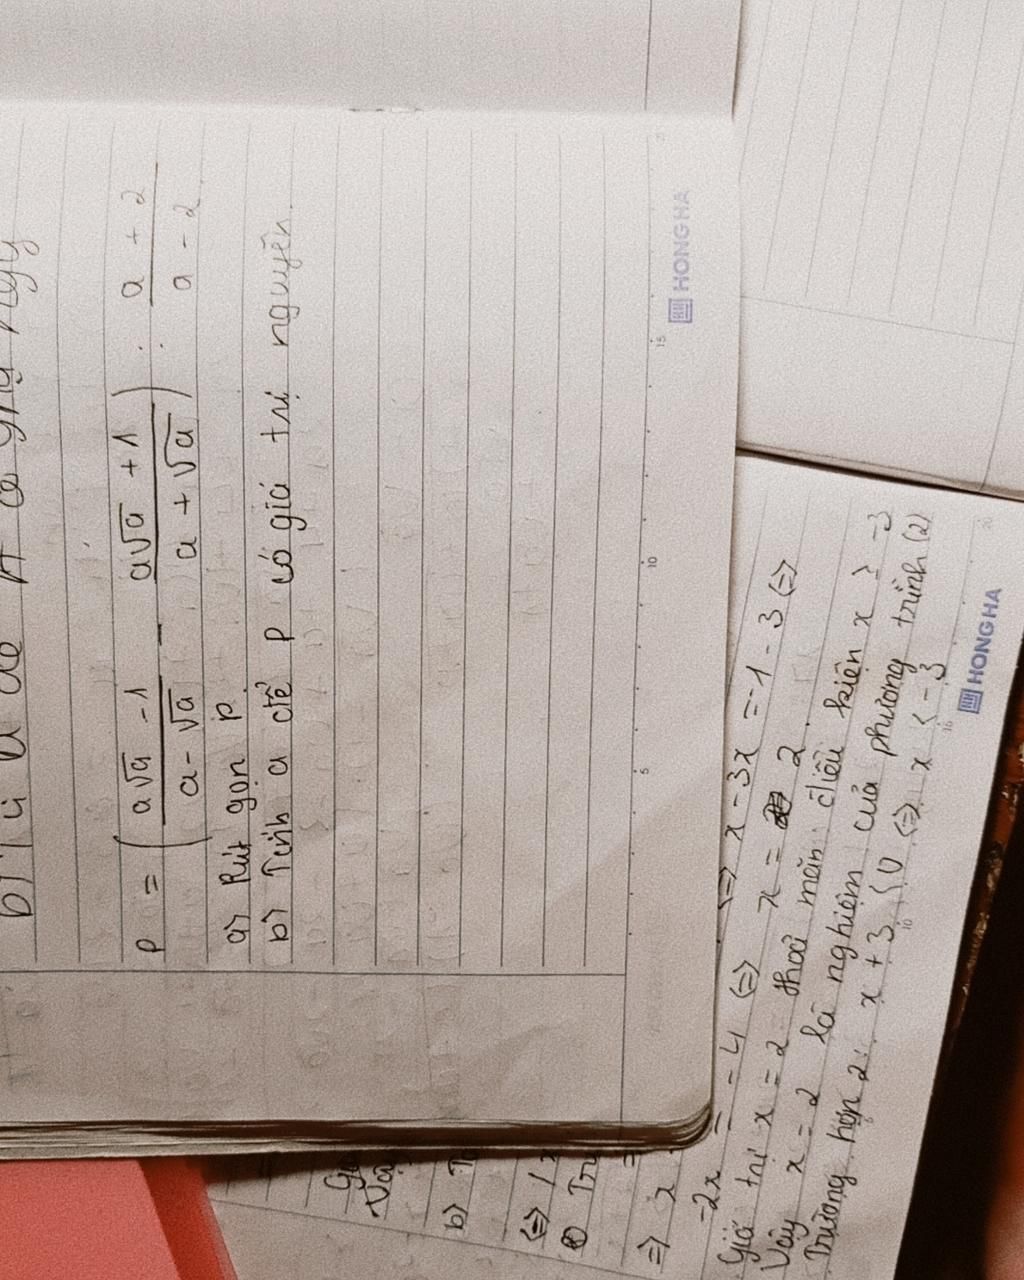 P = ( a√a - 1 / a - √a - a√a + 1 / a + √a ) : a + 2 / a - 2
a) Rút gọn P
b) Tính a để P có giá trị nguyên.
5 10 15
HONG HA
b)
-2x = -4 (=) (=) x - 3x = -1 - 3 (=)
x = 2
Giá trị x = 2 thoả mãn điều kiện x > -3
Vậy x = 2 là nghiệm của phương trình (2)
Trường hợp 2: x + 3 < 0 (=) x < -3
HONG HA